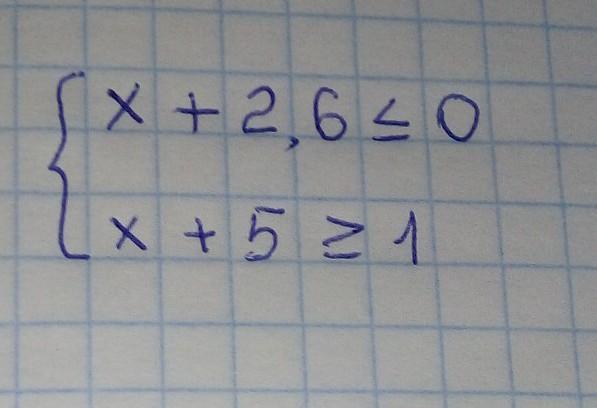 x + 2,6 ≤ 0
x + 5 ≥ 1